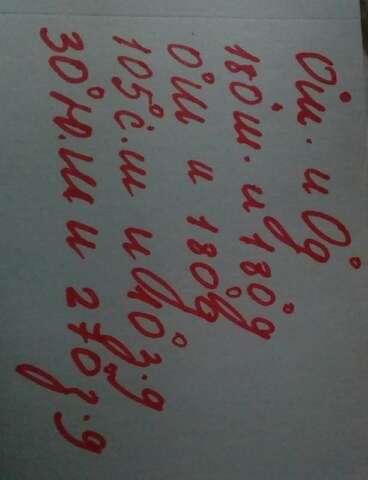 0°ш. и 0°д
180°ш. и 180°д
0°ш и 180°д
105°с.ш и 10°з.д
30°ю.ш и 270°з.д